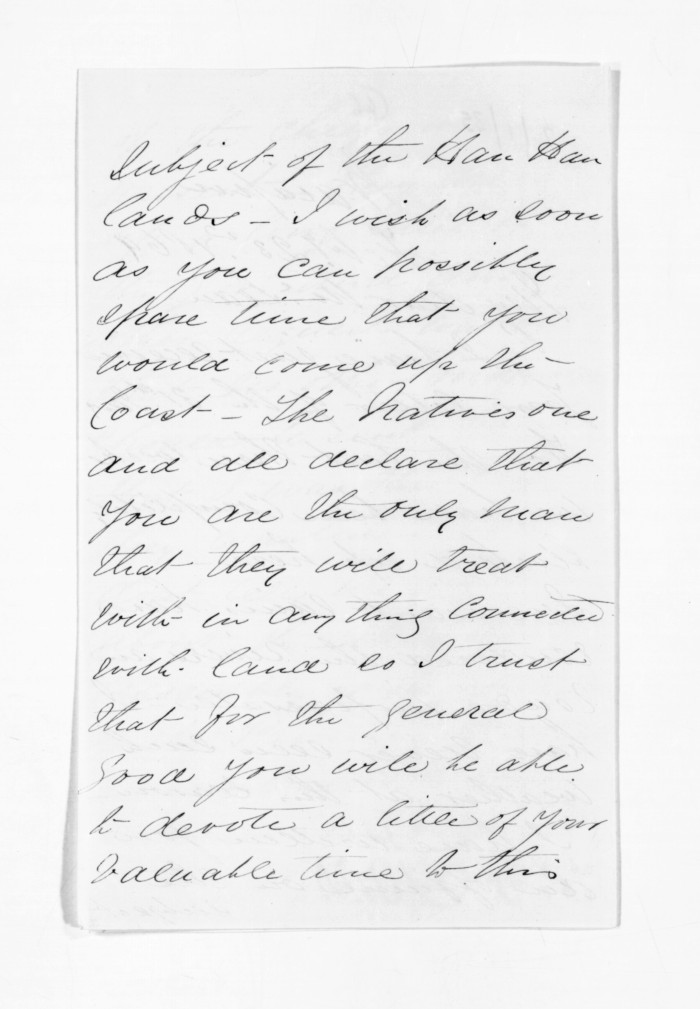 Subject of the Hau Hau
lands - I wish as soon
as you can possibly
spare time that you
would come up the
Coast - The Natives one
and all declare that
you are the only man
that they will treat
with in anything connected
with land so I trust
that for the general
good you will be able
to devote a little of your
valuable time to this